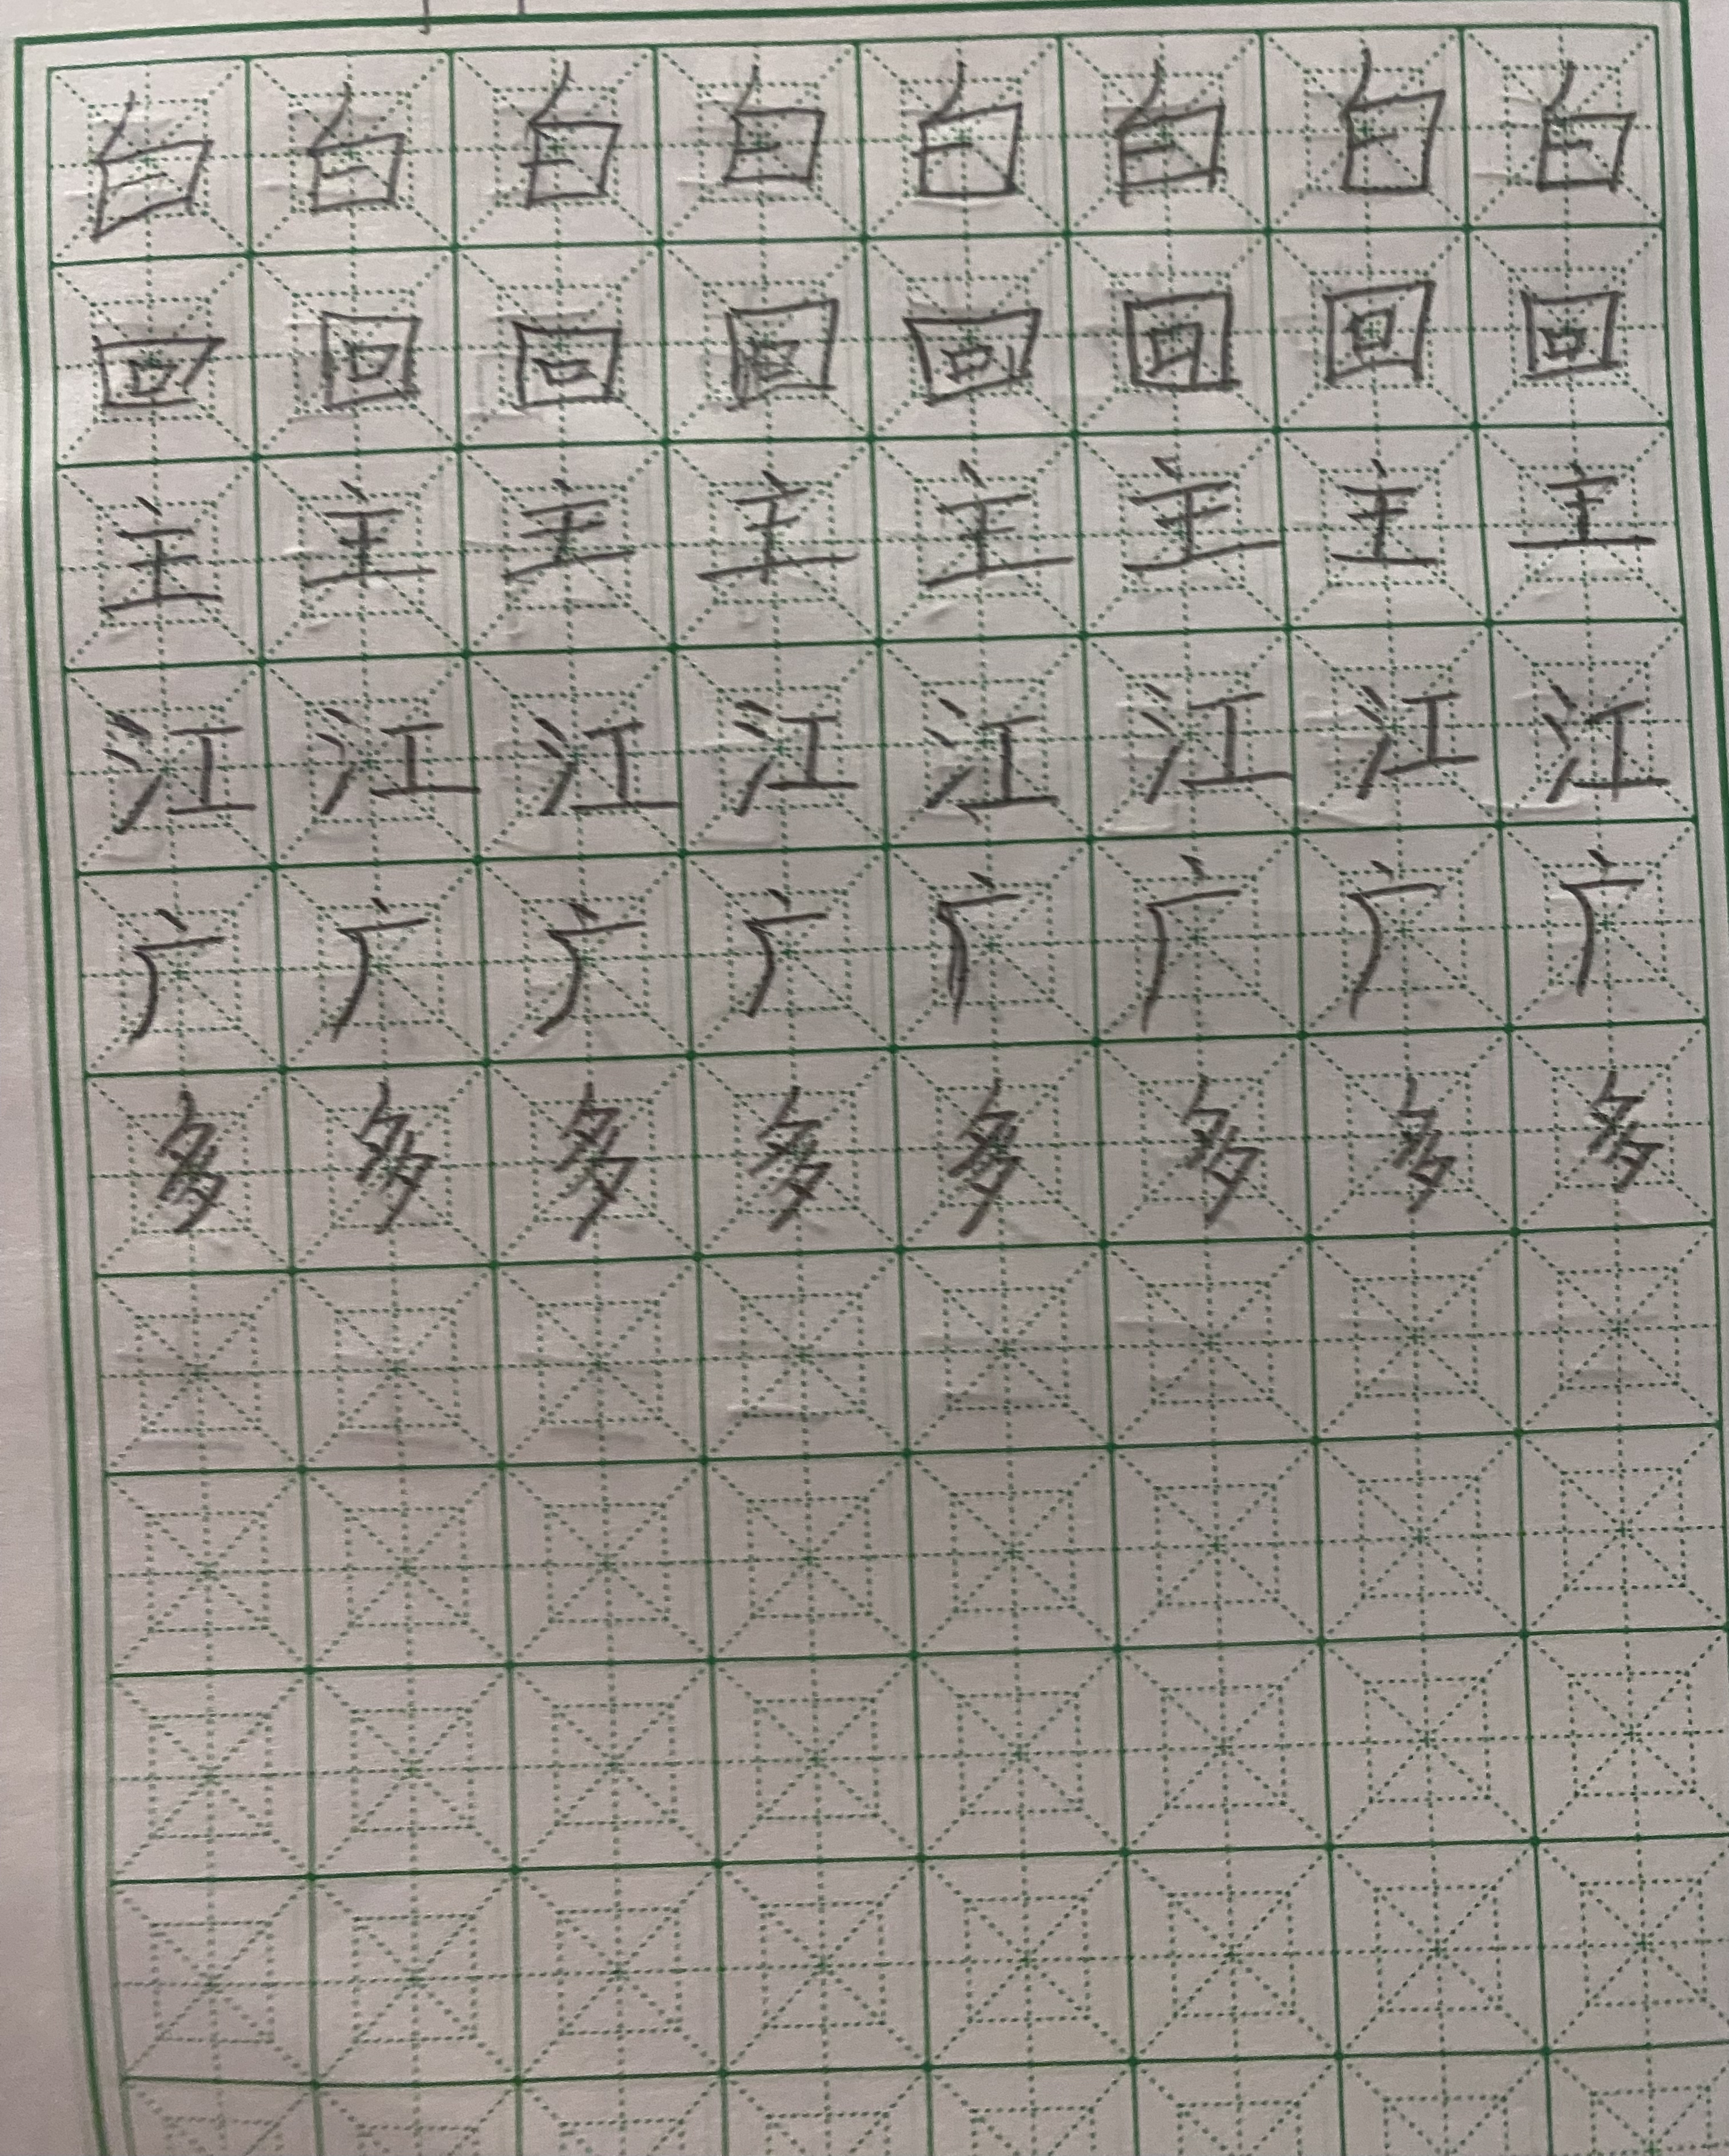 白白白白白白白白
回回回回回回回回
主主主主主主主主
江江江江江江江江
广广广广广广广广
多多多多多多多多